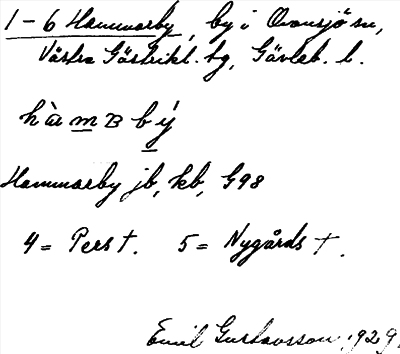 1-6 Hammarby, by i Ovansjö sn,
Västra Gästrikl. tg, Gävleb. l.
hàmʙbý
Hammarby jb, kb, G98
4 = Pers †. 5 = Nygårds †.
Emil Gustavsson 1929.